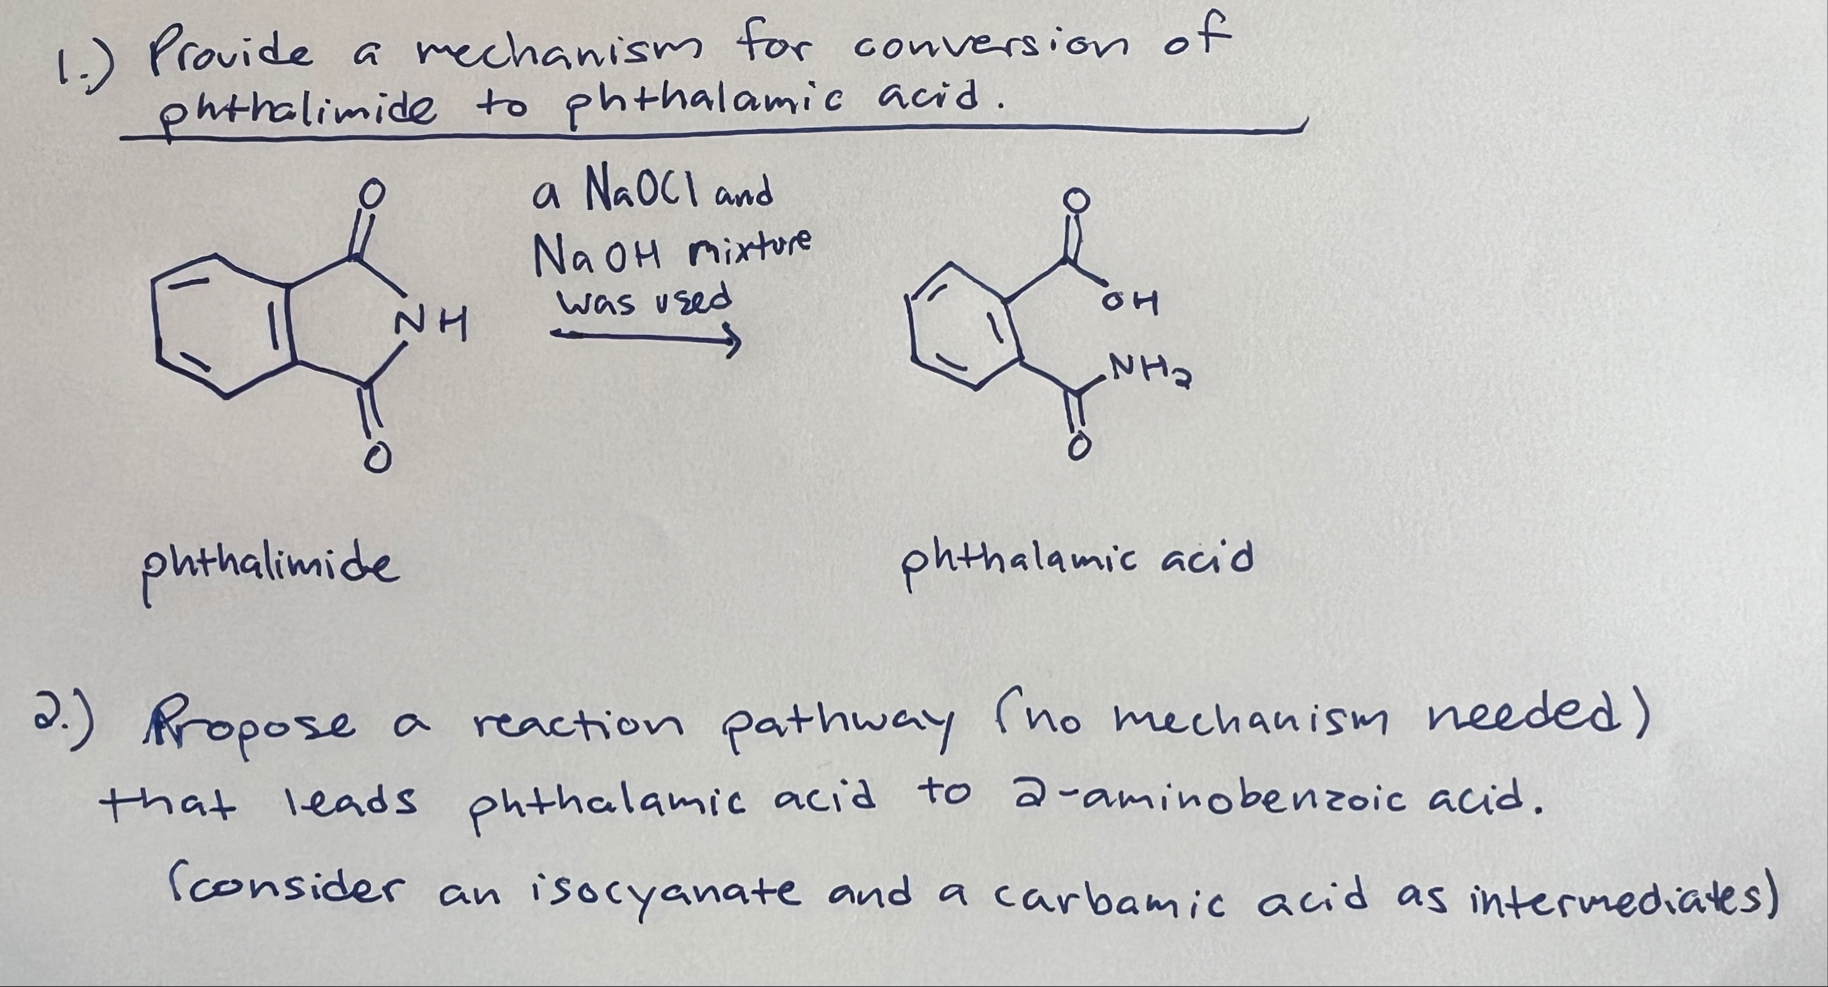 1.) Provide a mechanism for conversion of
phthalimide to phthalamic acid.
a NaOCl and
NaOH mixture
was used
O
NH
O
O
OH
NH2
O
phthalimide
phthalamic acid
2.) Propose a reaction pathway (no mechanism needed)
that leads phthalamic acid to 2-aminobenzoic acid.
(consider an isocyanate and a carbamic acid as intermediates)